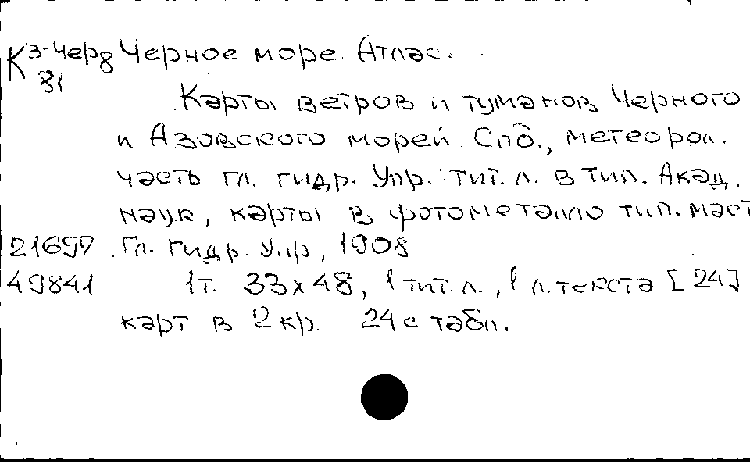 К 3-Чер8 Черное море. Атлас.
81
Карты ветров и туманов Черного
и Азовского морей. Спб., метеорол.
часть гл. гидр. Упр. тит. л. в тип. Акад.
наук, карты в фотометалло тип. маст
21697 Гл. гидр. Упр, 1908
49841 1т. 33х48, 1 тит. л., 1 л. текста [24]
карт в 2 кр. 24 с табл.